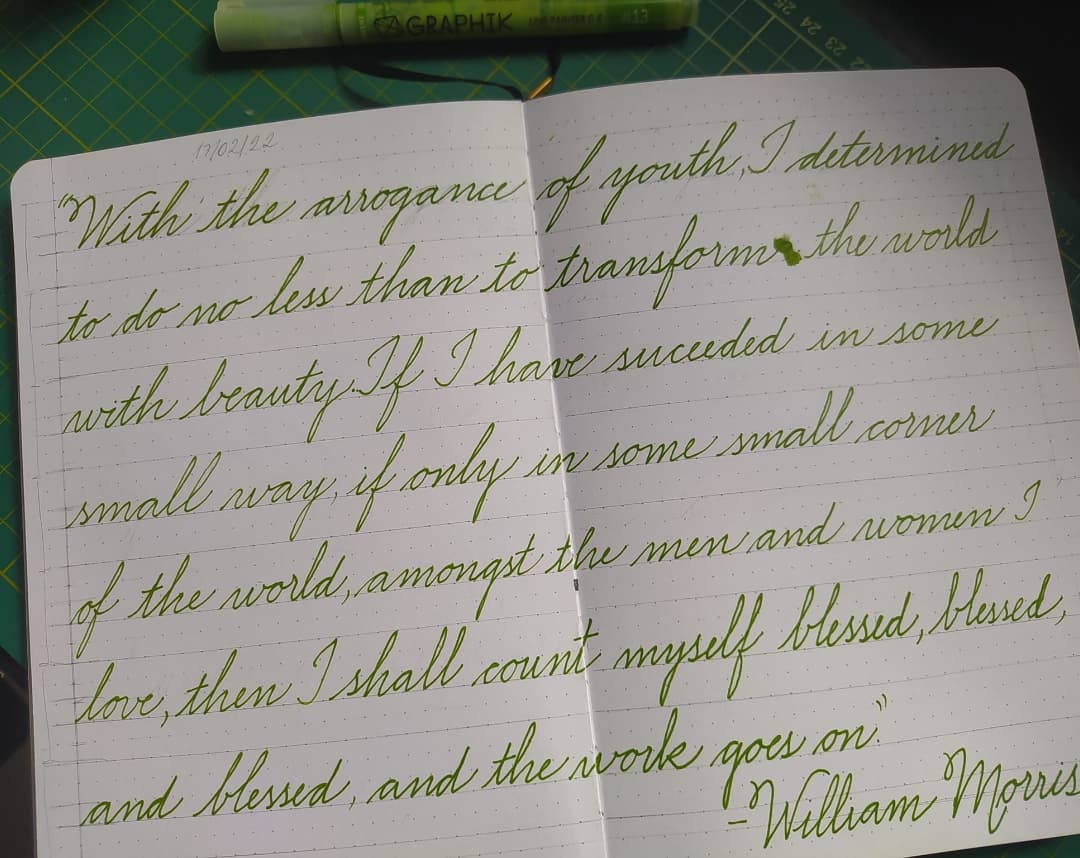 GRAPHIK LINE PAINTER 0.5 #13
25
24
23
22
14
17/02/22
"With the arrogance of youth, I determined
to do no less than to transform the world
with beauty. If I have succeded in some
small way, if only in some small corner
of the world, amongst the men and women I
love, then I shall count myself blessed, blessed,
and blessed, and the work goes on."
- William Morris